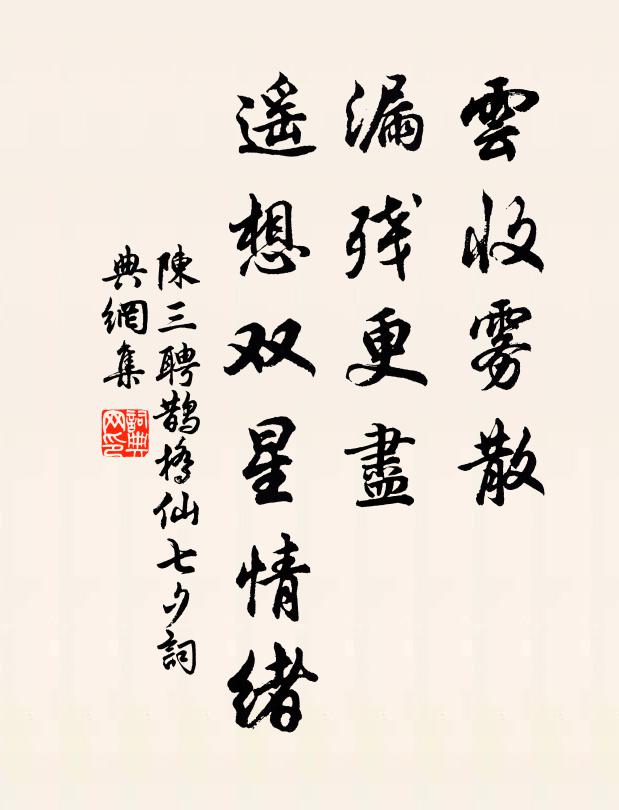 雲收雾散
漏残更盡
遥想双星情绪
陳三聘鹊橋仙七夕詞
典網集
詞典网印